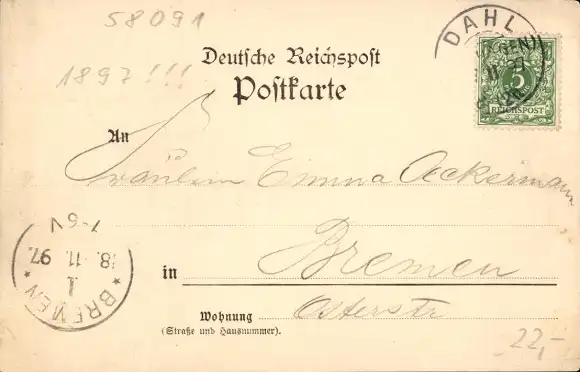 58091
DAHL
Deutsche Reichspost
1897!!!
Postkarte
5
REICHSPOST
An
Fräulein Emma Ackermann
1-6V
18.11.97.
1
* BREMEN *
in Bremen
Wohnung Osterstr
(Straße und Hausnummer).
22,-